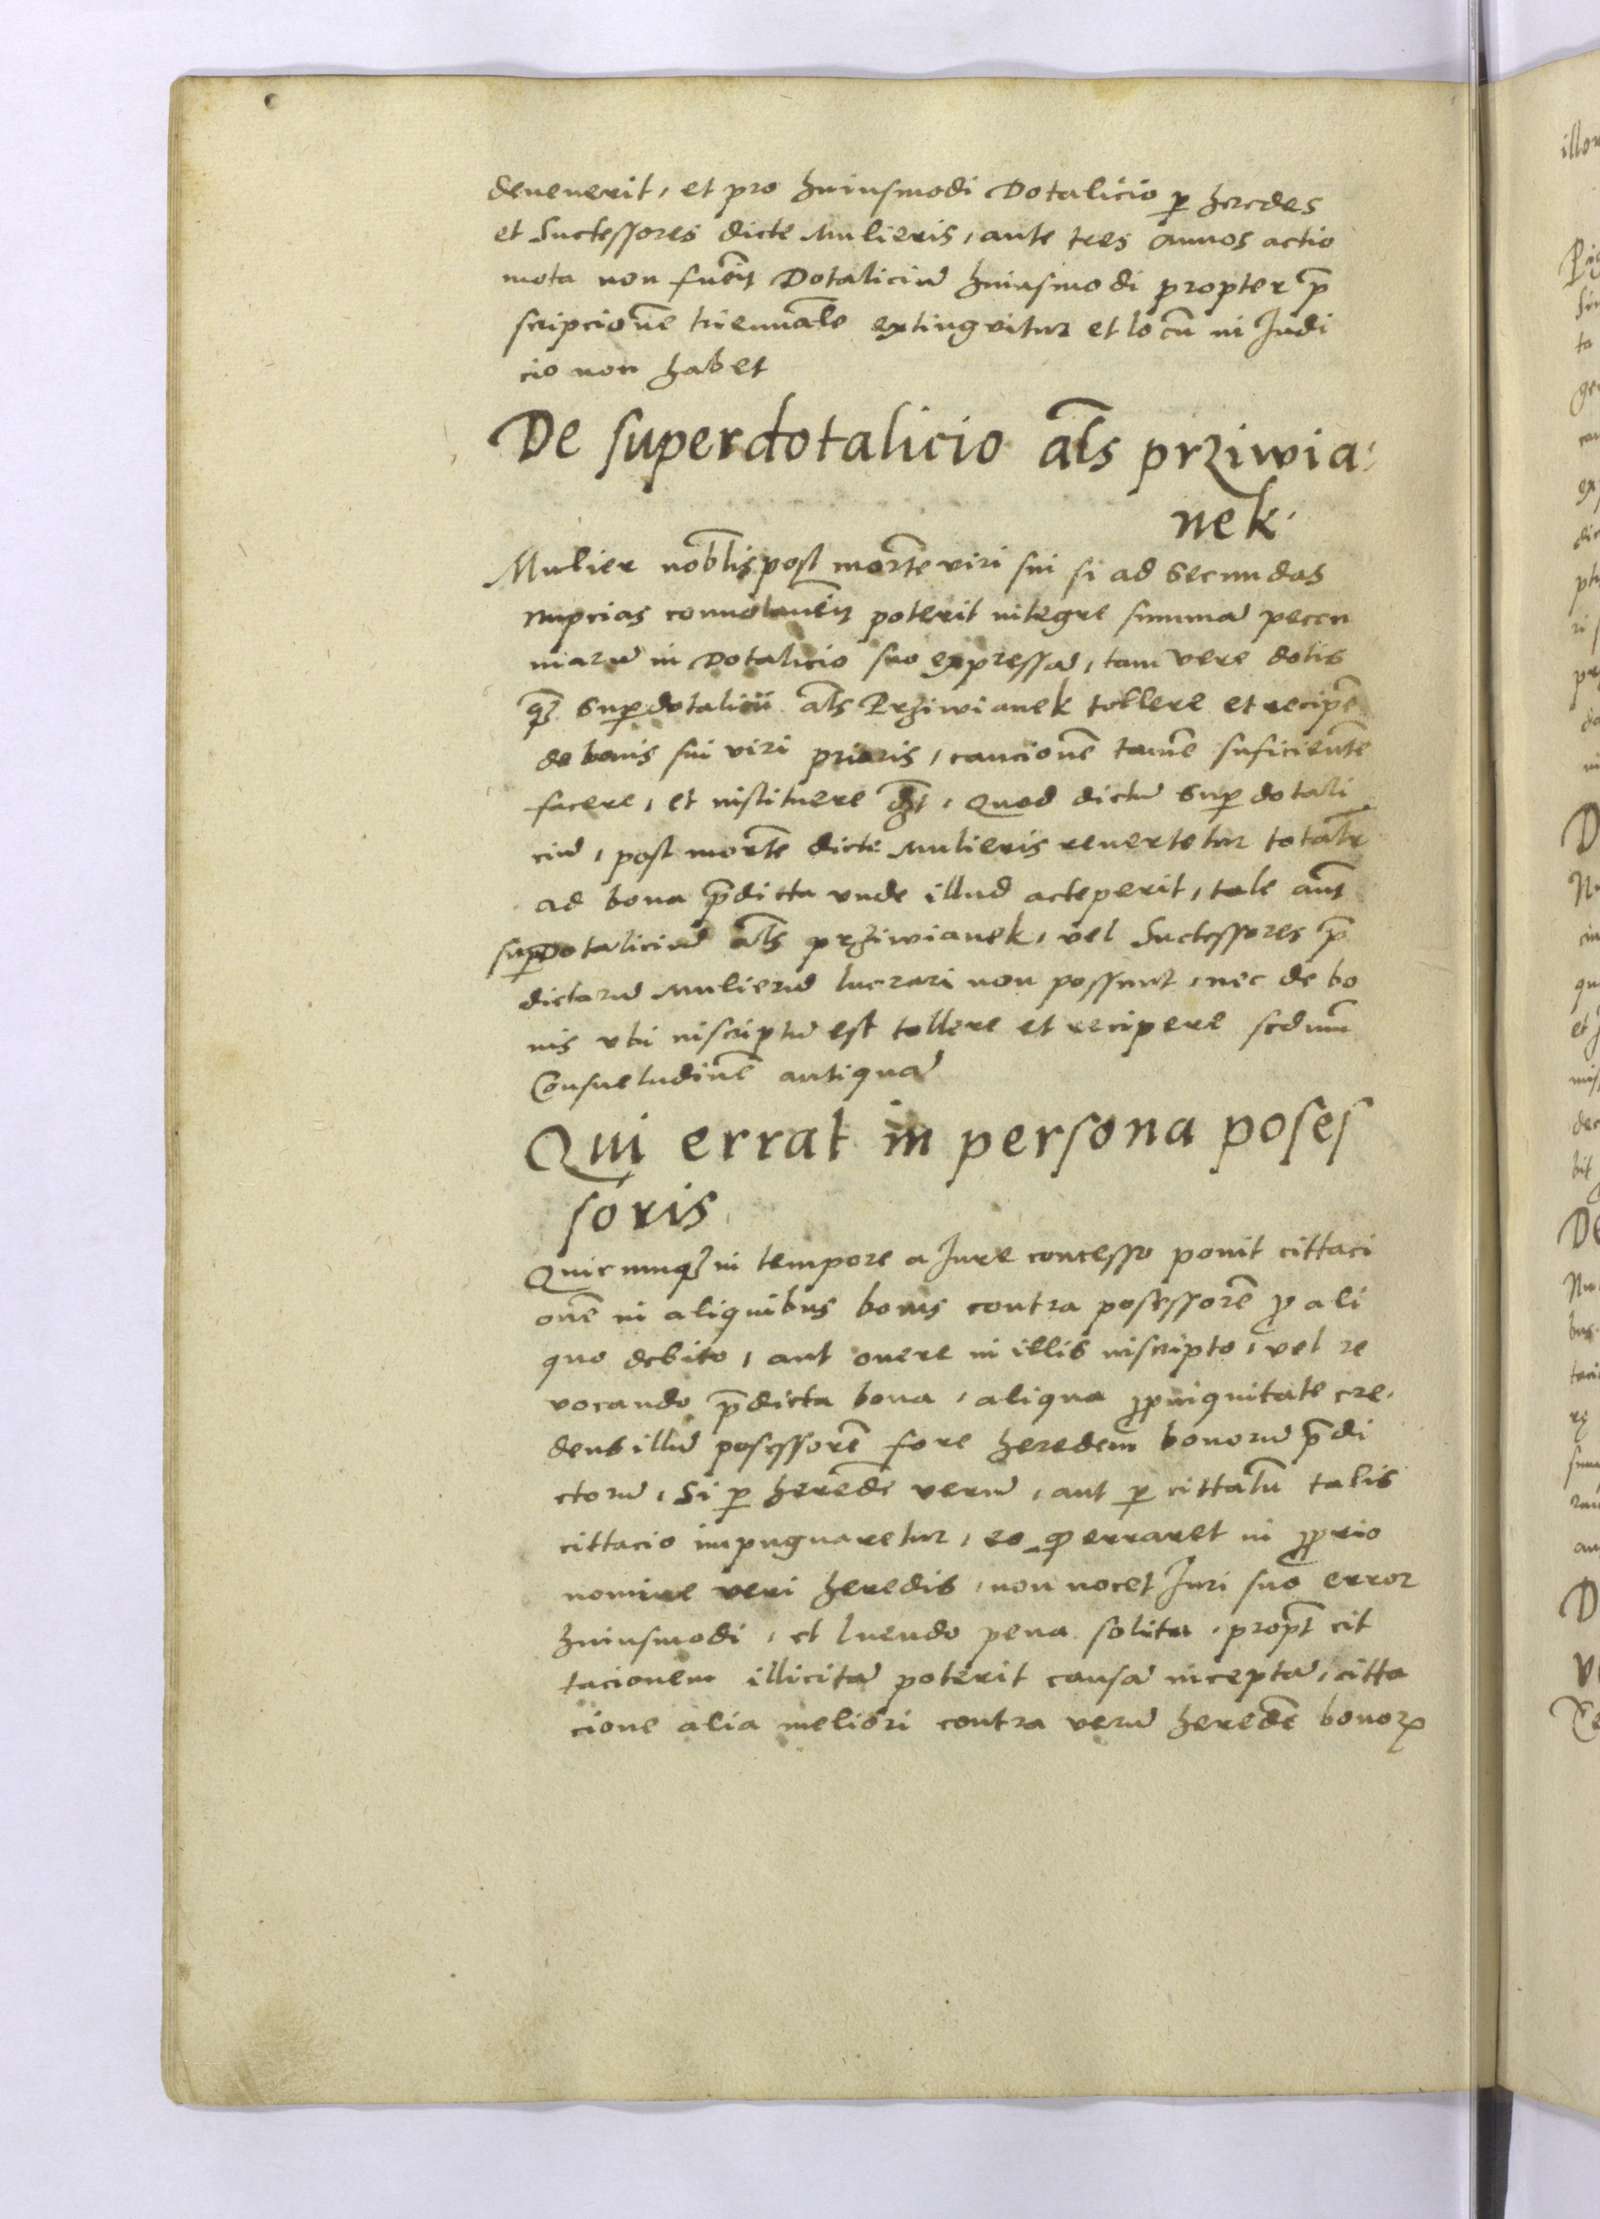 devenerit, et pro huiusmodi Dotalicio ꝑ heredes
et Suctessores dicte Mulieris, ante tres annos actio
mota non fue͂it Dotaliciu͂ huiusmodi propter p͂
scripcione͂ trienna͂le extingvitur et locu͂ in Judi
cio non habet
De superdotalicio al͂s prziwia:
nek.
Mulier nob͂lis post morte͂ viri sui si ad Secundas
nupcias convolaue͂it poterit integre summa͂ peccu
niaru͂ in Dotalicio suo expressa͂, tam vere dotis
qꝫ Suꝑdotalicii al͂s Prziwianek tollere et recipe͂
de bonis sui viri prioris, caucione͂ tame͂ suficiente͂
facere, et instituere d͂t, Quod dictu͂ Suꝑdotali
ciu͂, post morte͂ dicte Mulieris revertetur total͂r
ad bona p͂dicta vnde illud acteperit, tale aut͂
suꝑDotaliciu͂ al͂s prziwianek, vel Suctessores p͂
dictaru͂ Mulieru͂ lucrari non possunt, nec de bo
nis vbi inscriptu͂ est tollere et recipere sedum͂
Consuetudine͂ antiqua͂
Qui errat in persona poses
soris
Quicunqꝫ in tempore a Jure concesso ponit cittaci
one͂ in aliquibus bonis contra posessore͂ ꝓ ali
quo debito, aut onere in illis inscripto, vel re
vocando p͂dicta bona, aliqua ꝓpinquitate cre,
dens illu͂ posessore͂ fore heredem bonoru͂ p͂di
ctoru͂, Si ꝑ herede͂ veru͂, aut ꝑ cittatu͂ talis
cittacio impugnaretur, eo ꝙ erraret in ꝓprio
nomine veri heredis, non nocet Juri suo error
huiusmodi, et luendo pena solita, propt͂ cit
tacionem illicita͂ poterit causa͂ incepta͂, citta
cione alia meliori contra veru͂ herede͂ bonoꝝ